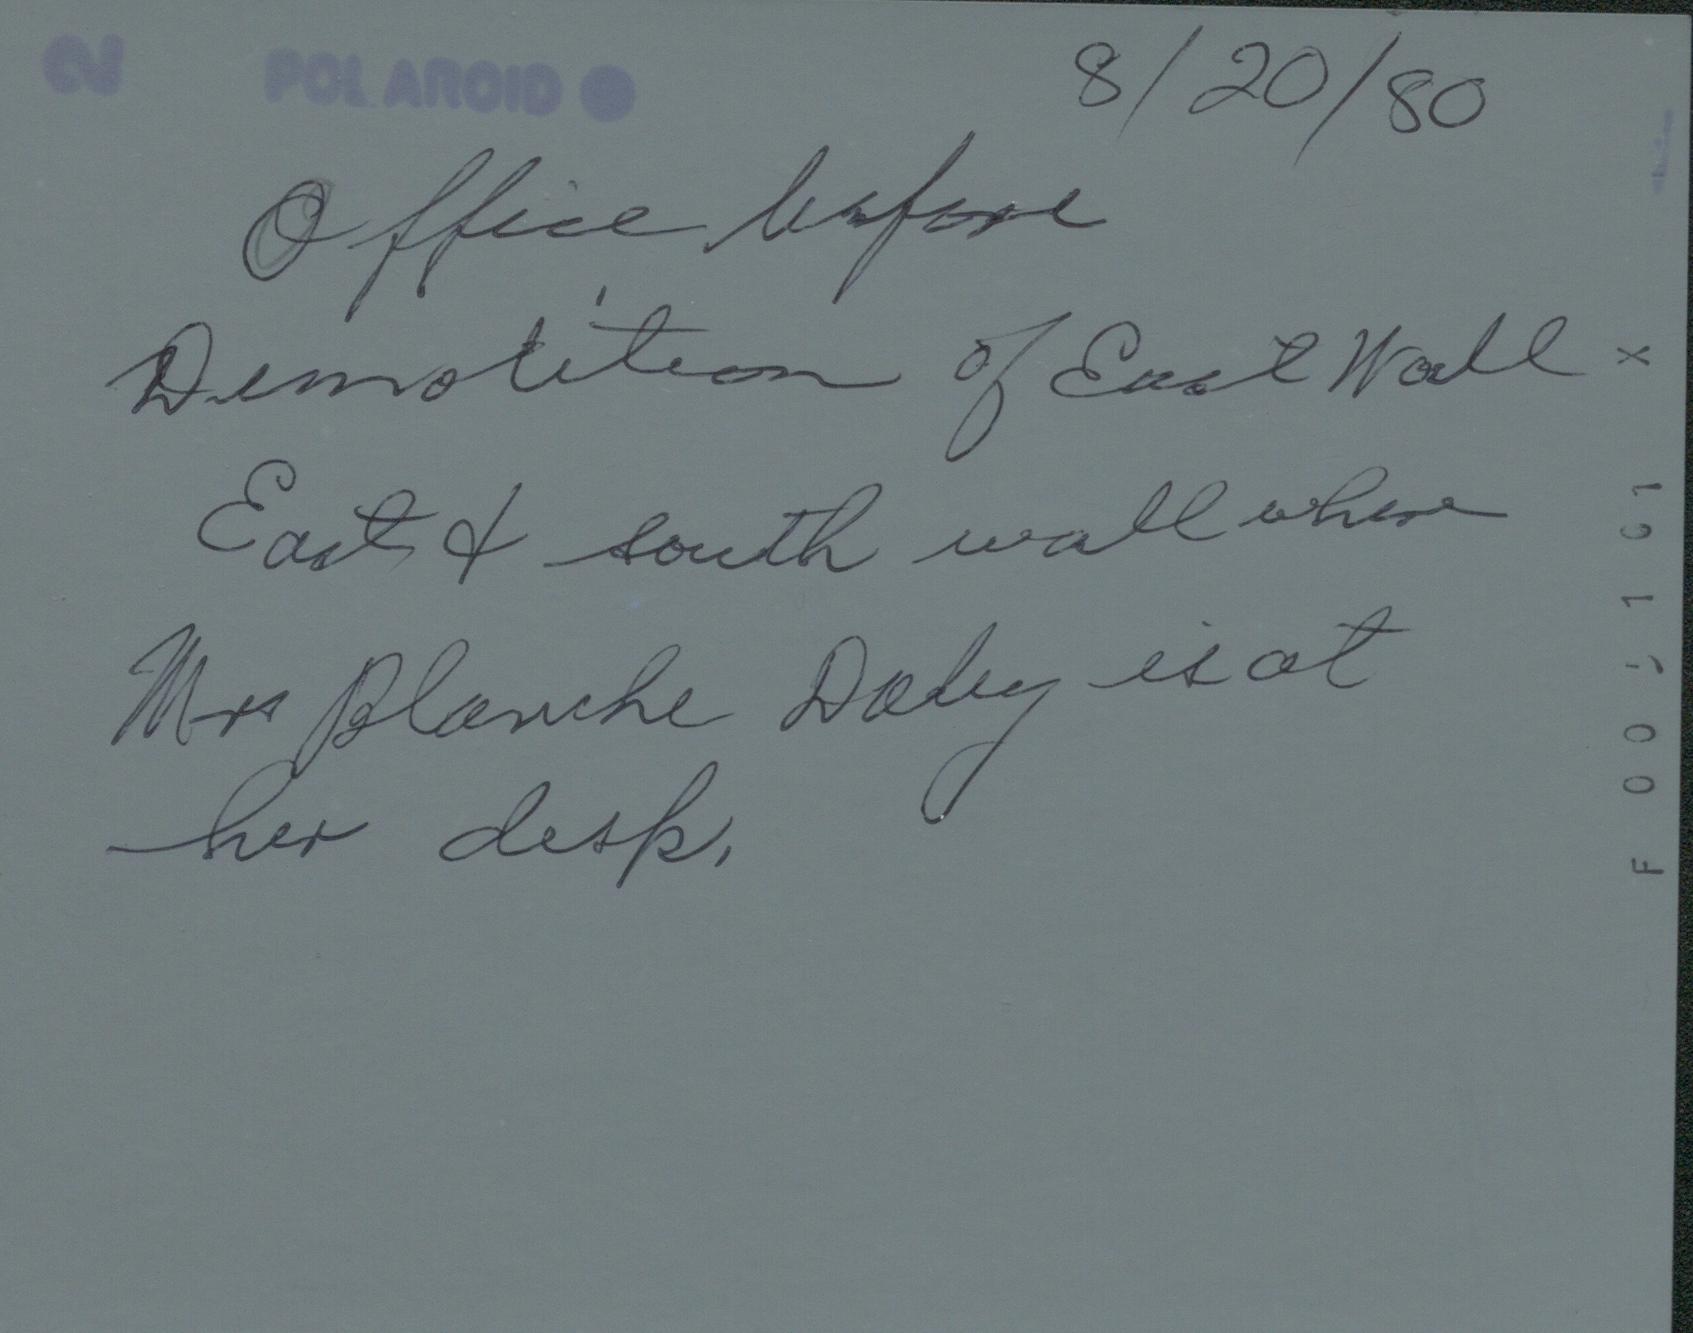 2 POLAROID
8/20/80
Office before
Demolition of East Wall
East & south wall where
Mrs Blanche Daley is at
her desk.